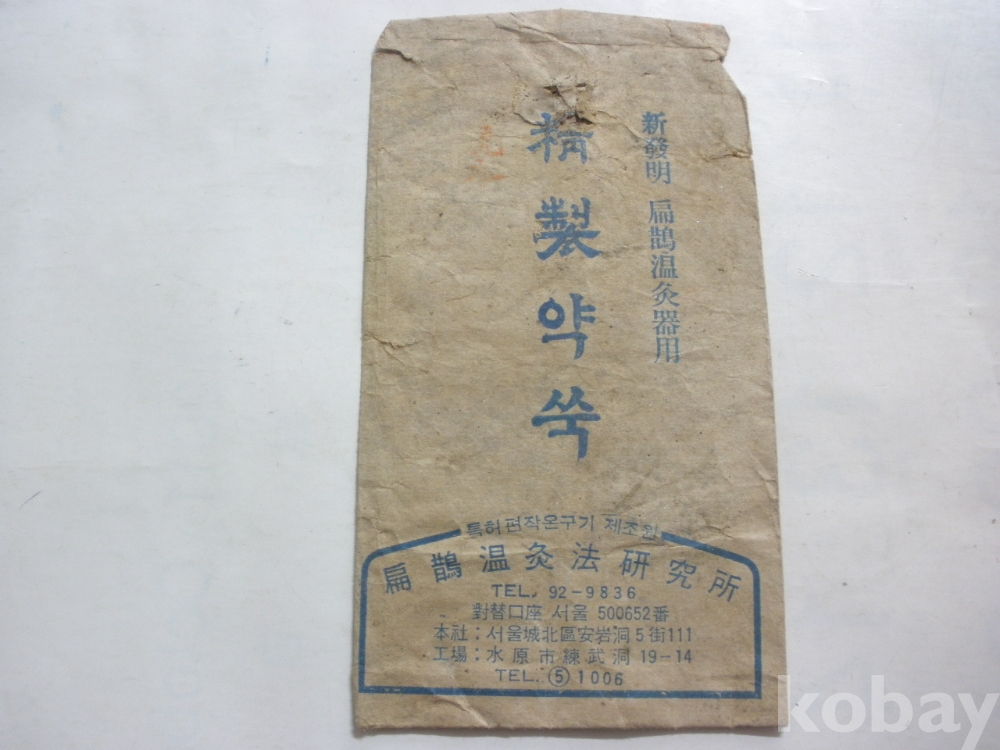 新發明 扁鵲温灸器用
精製약쑥
특허편작온구기 제조원
扁鵲温灸法研究所
TEL. 92-9836
對替口座 서울 500652番
本社 : 서울城北區安岩洞 5 街111
工場 : 水原市練武洞 19-14
TEL. ⑤ 1006
kobay